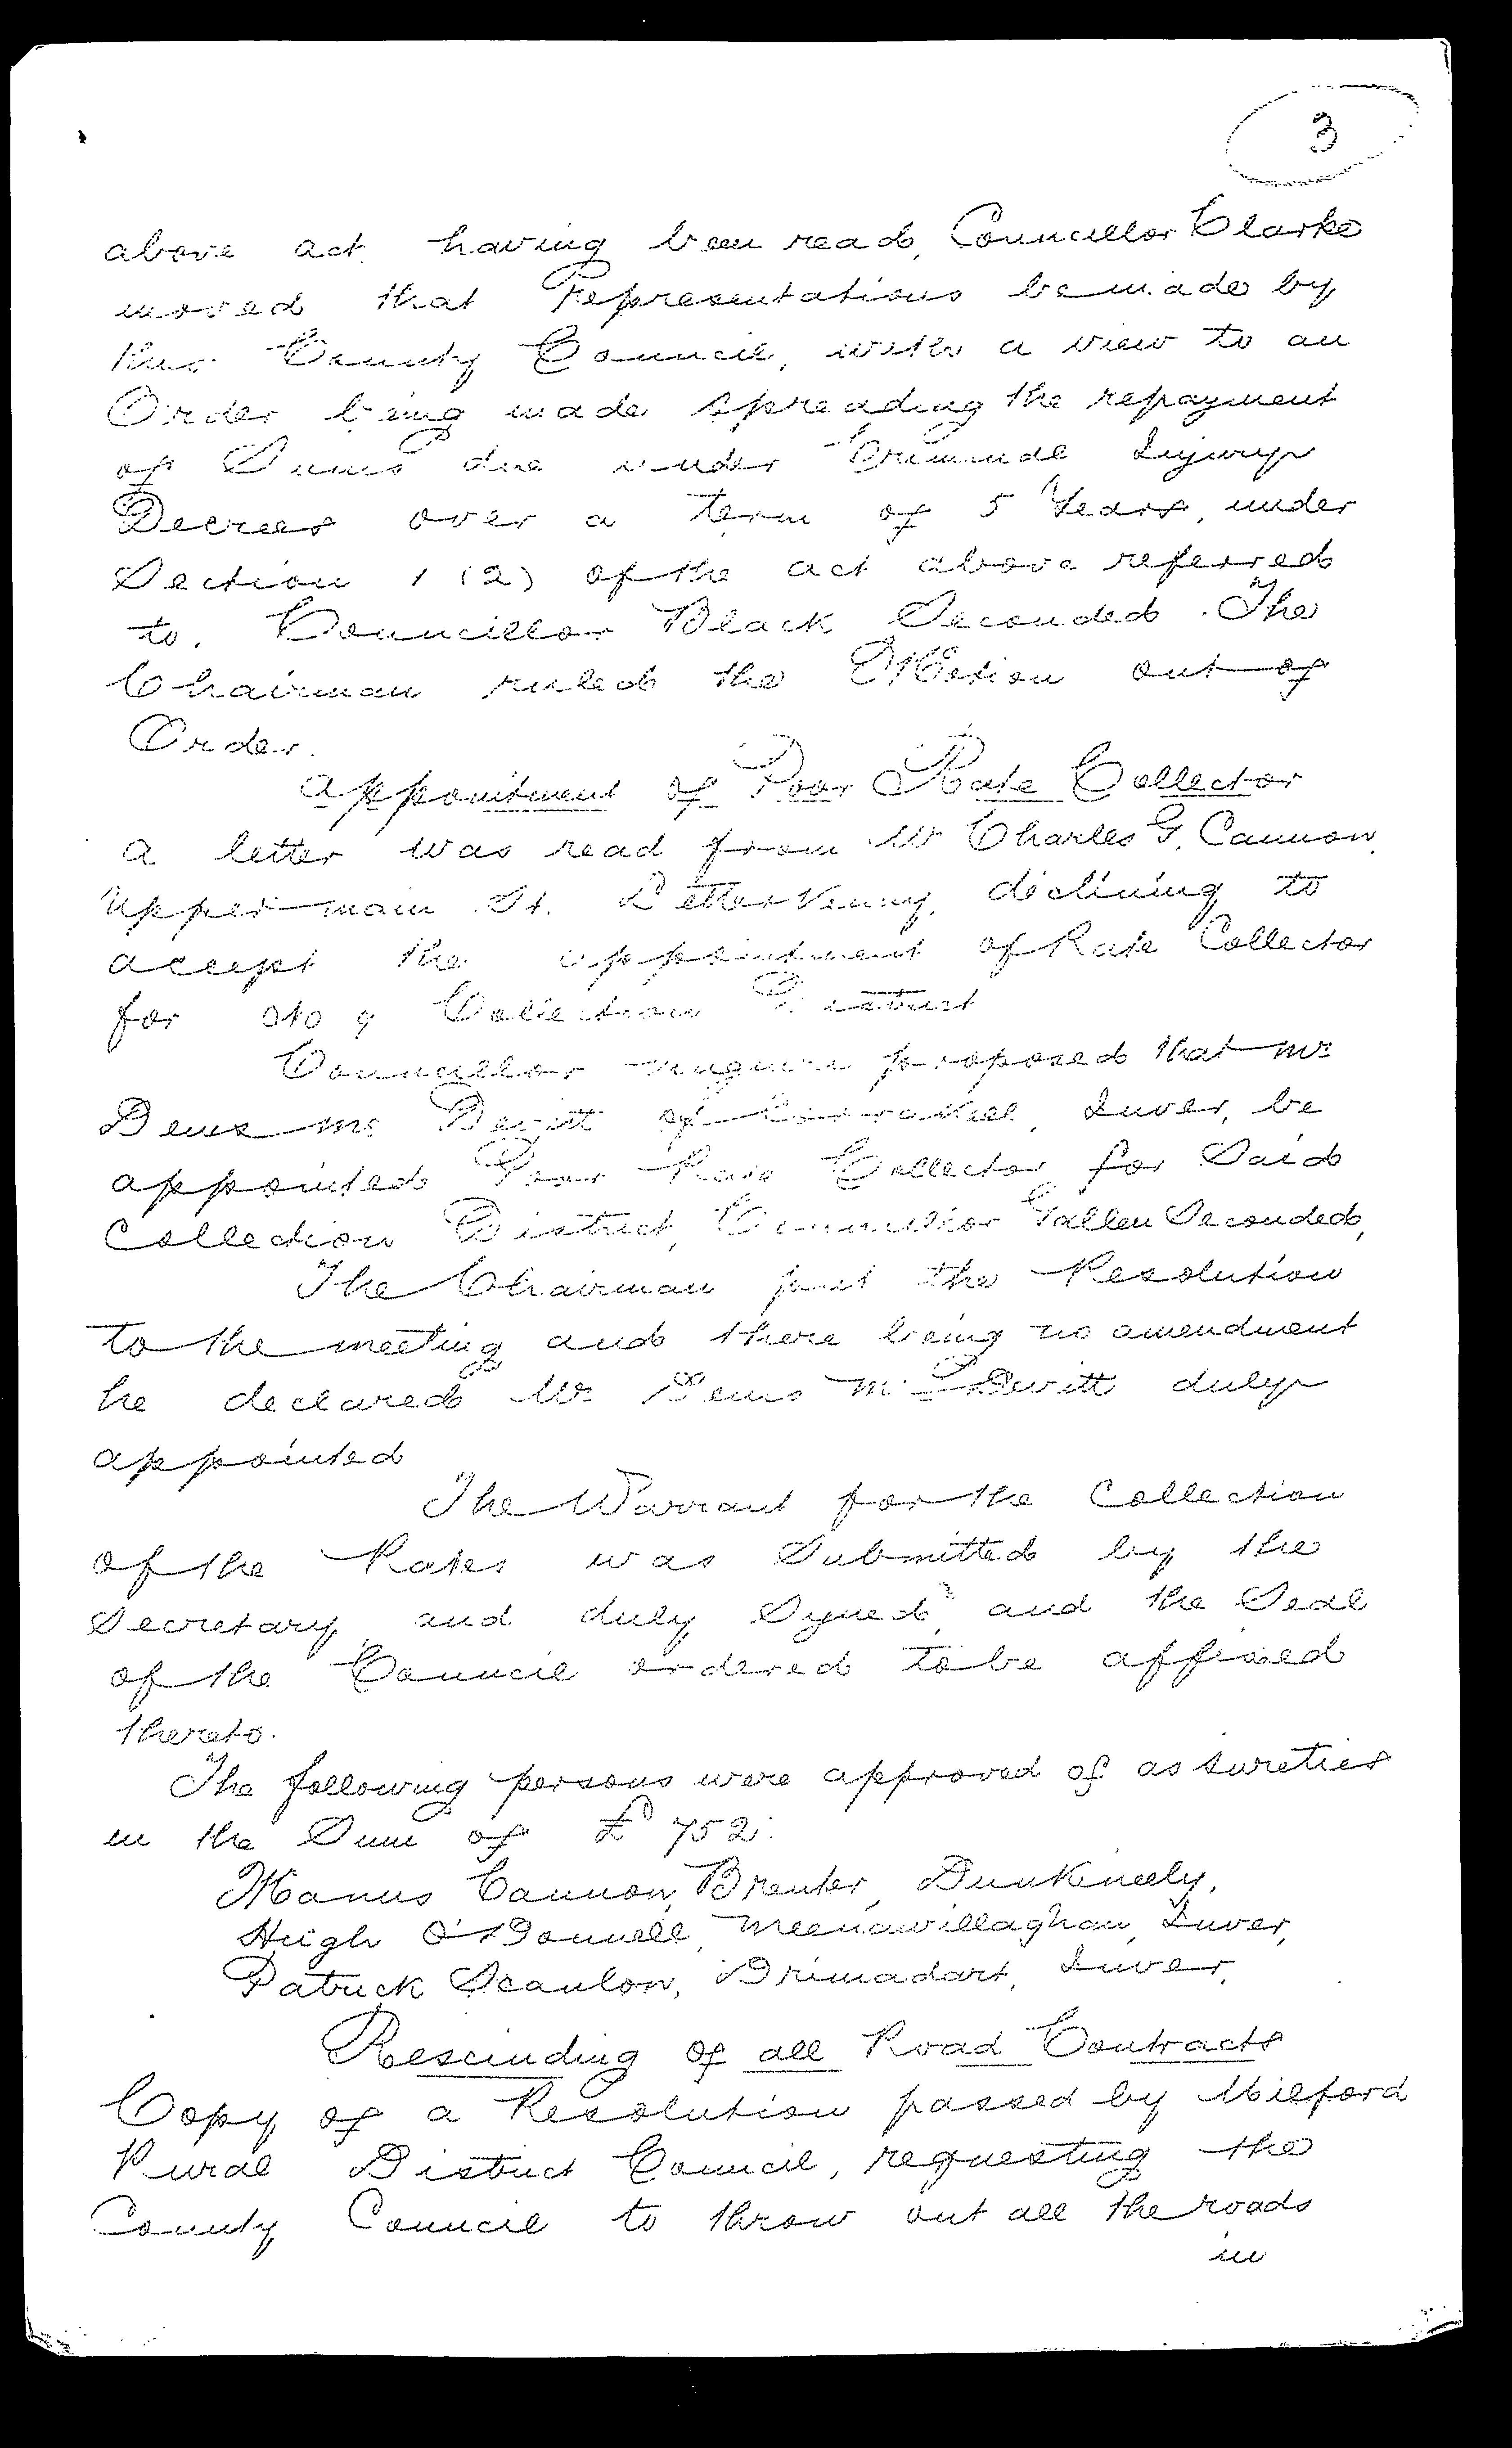 3
above act having been read, Councillor Clarke
moved that Representations be made by
this County Council, with a view to an
Order being made spreading the repayment
of Sums due under Criminal Injury
Decrees over a term of 5 Years, under
Section 1 (2) of the act above referred
to. Councillor Black Seconded. The
Chairman ruled the Motion out of
Order.
Appointment of Poor Rate Collector
A letter was read from Mr Charles G. Cannon,
Upper main St. Letterkenny, declining to
accept the appointment of Rate Collector
for No 9 Collection District
Councillor proposed that Mr
Denis Mc Devitt of Inver, be
appointed Poor Rate Collector for Said
Collection District, Councillor Gallen Seconded,
The Chairman put the Resolution
to the meeting and there being no amendment
he declared Mr Denis Mc Devitt duly
appointed
The Warrant for the Collection
of the Rates was Submitted by the
Secretary and duly Signed, and the Seal
of the Council ordered to be affixed
thereto.
The following persons were approved of as sureties
in the Sum of £752.
Manus Cannon, Brenter, Dunkineely,
Hugh O'Donnell, Meenawillaghan, Inver,
Patrick Scanlon, Drimadart, Inver,
Rescinding of all Road Contracts
Copy of a Resolution passed by Milford
Rural District Council, requesting the
County Council to throw out all the roads
in